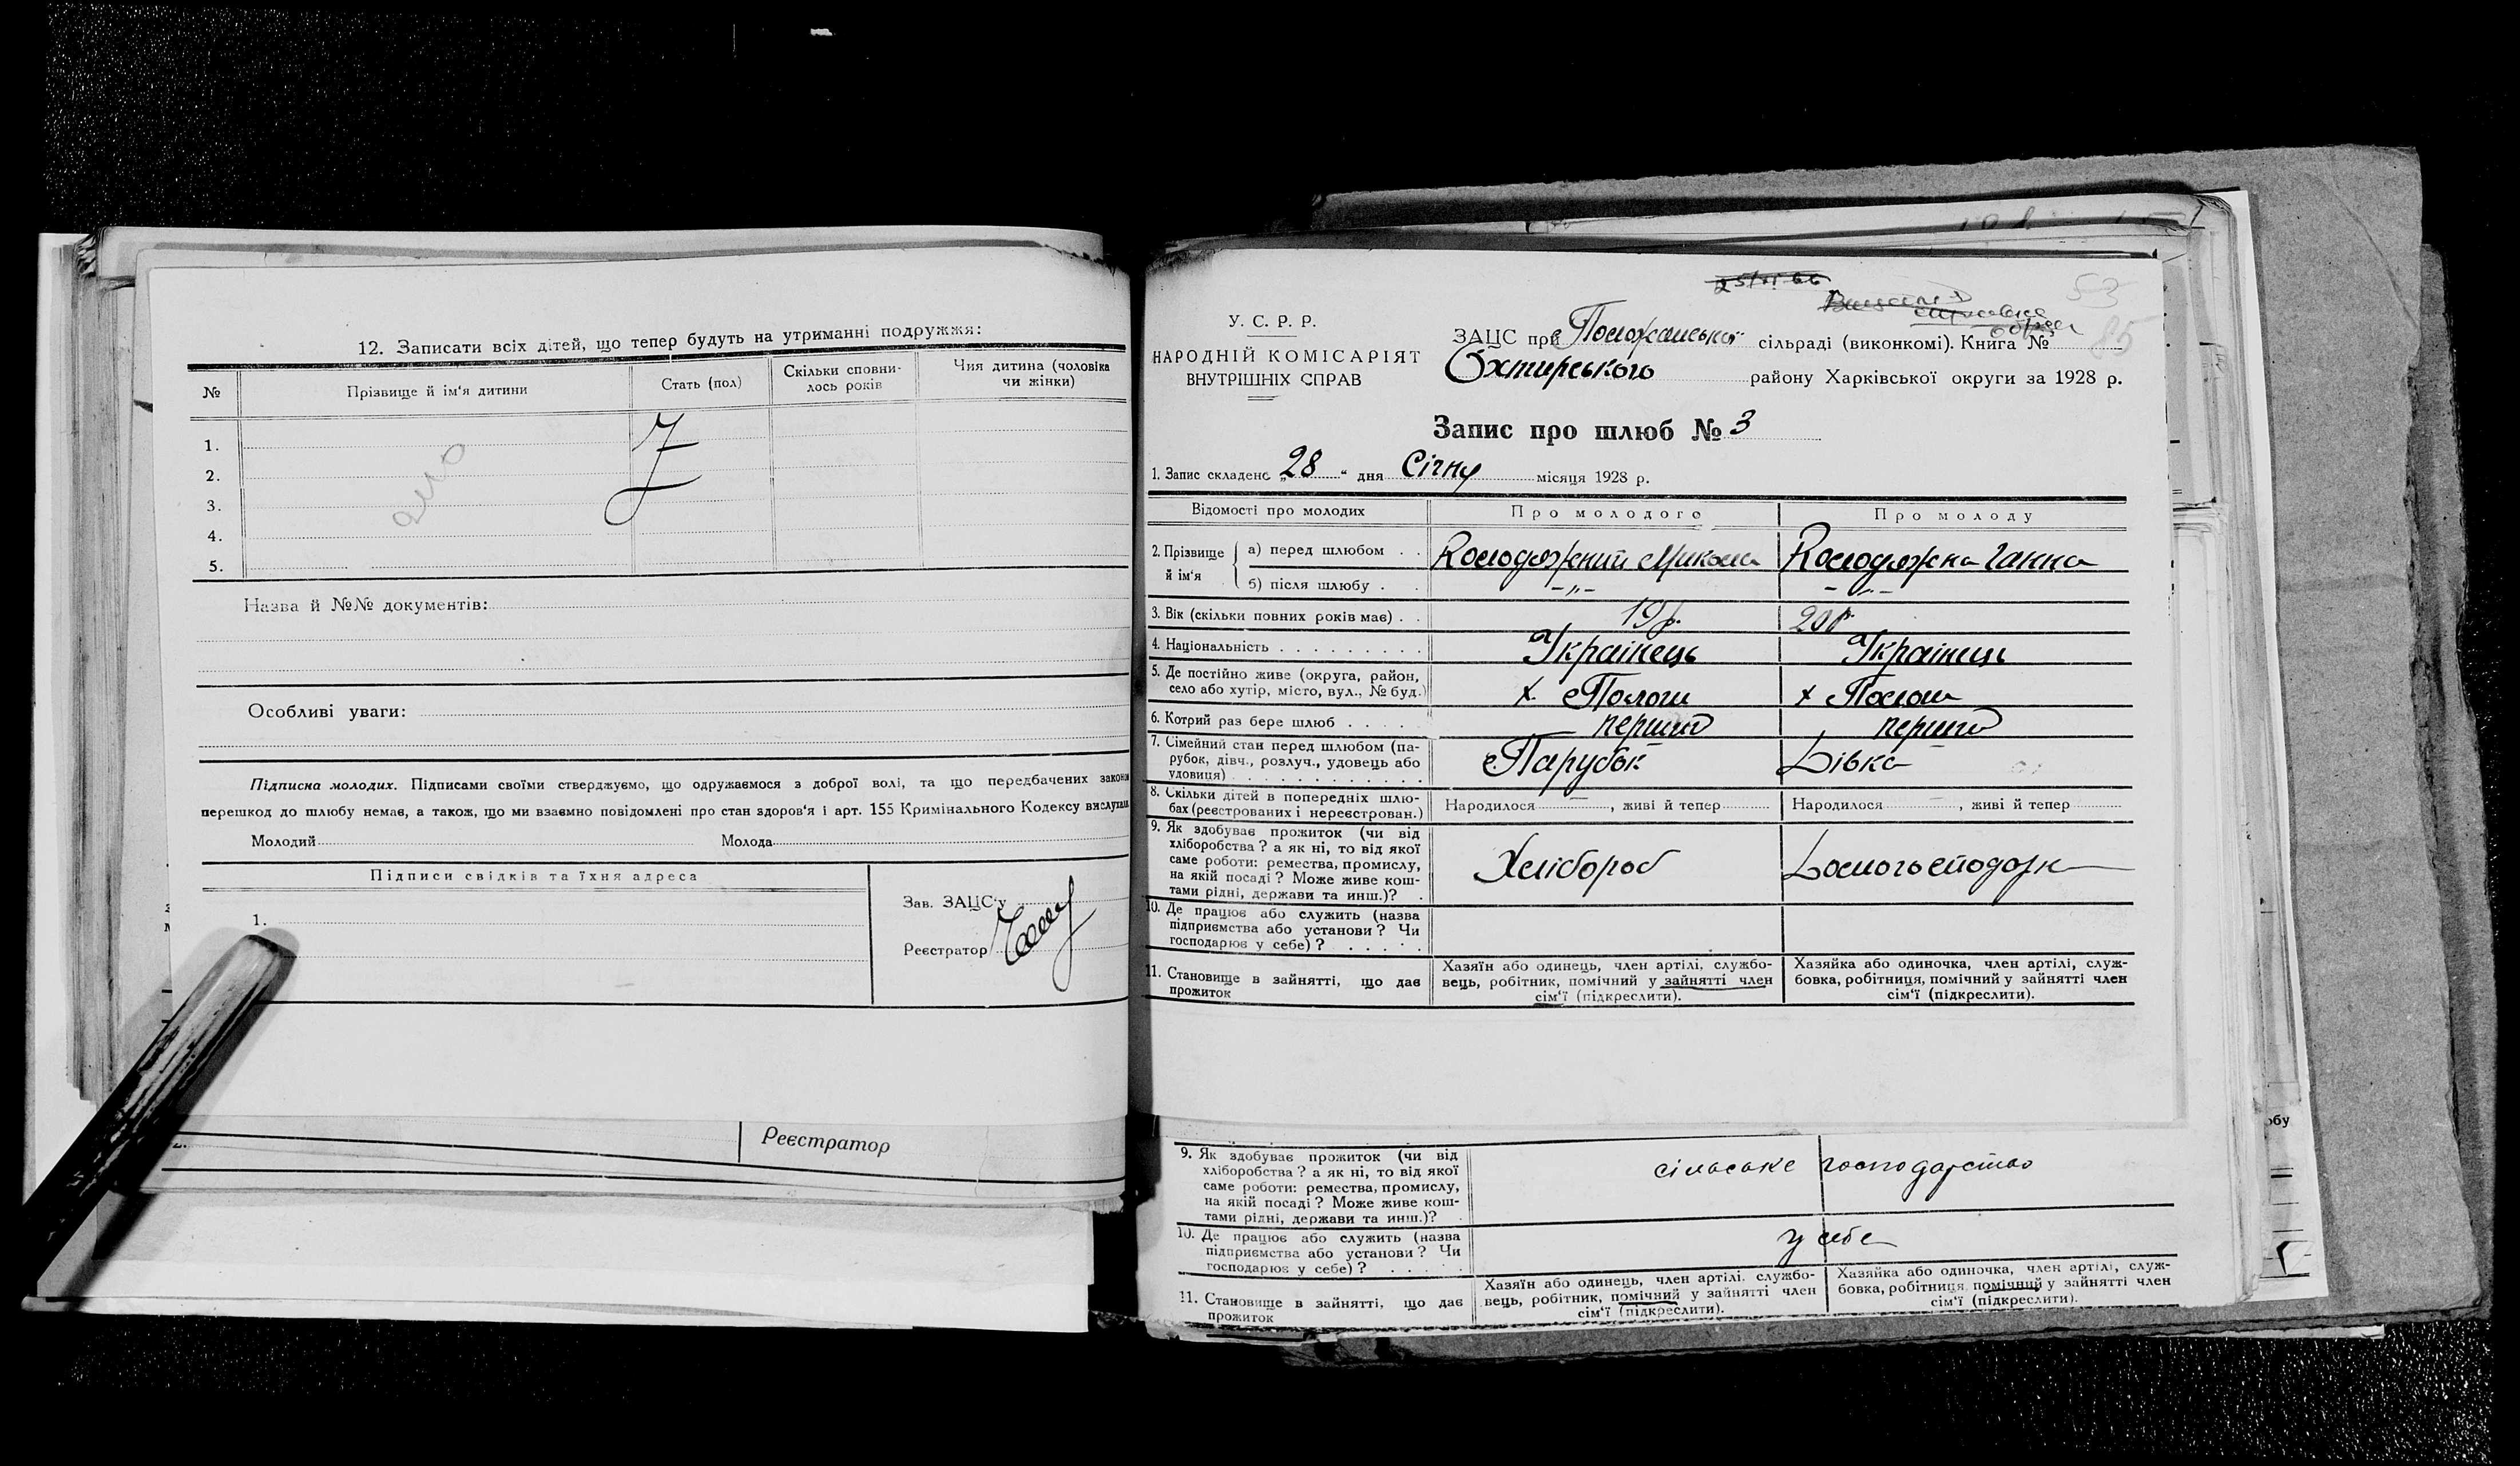 12. Записати всіх дітей, що тепер будуть на утриманні подружжя:
№ Прізвище й ім'я дитини Стать (пол) Скільки сповни-лось років Чия дитина (чоловіка чи жінки)
1.
2.
3.
4.
5.
Назва й №№ документів:
Особливі уваги:
Підписка молодих. Підписами своїми стверджуємо, що одружаємося з доброї волі, та що передбачених законом
перешкод до шлюбу немає, а також, що ми взаємно повідомлені про стан здоров'я і арт. 155 Кримінального Кодексу вислухали
Молодий Молода
Підписи свідків та їхня адреса
1.
Зав. ЗАЦС'у
Реєстратор
2.
Реєстратор
25/VI 66
53
85
У. С. Р. Р.
НАРОДНІЙ КОМІСАРІЯТ
ВНУТРІШНІХ СПРАВ
ЗАЦС при Положанській сільраді (виконкомі). Книга №
Охтирського району Харківської округи за 1928 р.
Запис про шлюб № 3
1. Запис складено „28" дня Січня місяця 1928 р.
Відомості про молодих Про молодого Про молоду
2. Прізвище й ім'я
а) перед шлюбом . . Колодяжний Микола Колодяжна Ганна
б) після шлюбу . . -"- -"-
3. Вік (скільки повних років має) . . 19 р. 20 р.
4. Національність . . . . . . . . . Українець Українець
5. Де постійно живе (округа, район,
село або хутір, місто, вул., № буд.) х. Пологи х Пологи
6. Котрий раз бере шлюб . . . . . перший перший
7. Сімейний стан перед шлюбом (па-
рубок, дівч., розлуч., удовець або
удовиця) . . . . . . . . . . . Парубок Дівка
8. Скільки дітей в попередніх шлю-
бах (реєстрованих і нереєстрован.) Народилося — , живі й тепер Народилося — , живі й тепер
9. Як здобуває прожиток (чи від
хліборобства? а як ні, то від якої
саме роботи: ремества, промислу,
на якій посаді? Може живе кош-
тами рідні, держави та инш.)? . Хлібороб Домогосподарк
10. Де працює або служить (назва
підприємства або установи? Чи
господарює у себе)? . . . . .
11. Становище в зайнятті, що дає
прожиток
Хазяїн або одинець, член артілі, службо-
вець, робітник, помічний у зайнятті член
сім'ї (підкреслити).
Хазяйка або одиночка, член артілі, служ-
бовка, робітниця, помічний у зайнятті член
сім'ї (підкреслити).
9. Як здобуває прожиток (чи від
хліборобства? а як ні, то від якої
саме роботи: ремества, промислу,
на якій посаді? Може живе кош-
тами рідні, держави та инш.)? сільське господарство
10. Де працює або служить (назва
підприємства або установи? Чи
господарює у себе)? . . . . . у себе
11. Становище в зайнятті, що дає
прожиток
Хазяїн або одинець, член артілі, службо-
вець, робітник, помічний у зайнятті член
сім'ї (підкреслити).
Хазяйка або одиночка, член артілі, служ-
бовка, робітниця, помічний у зайнятті член
сім'ї (підкреслити).